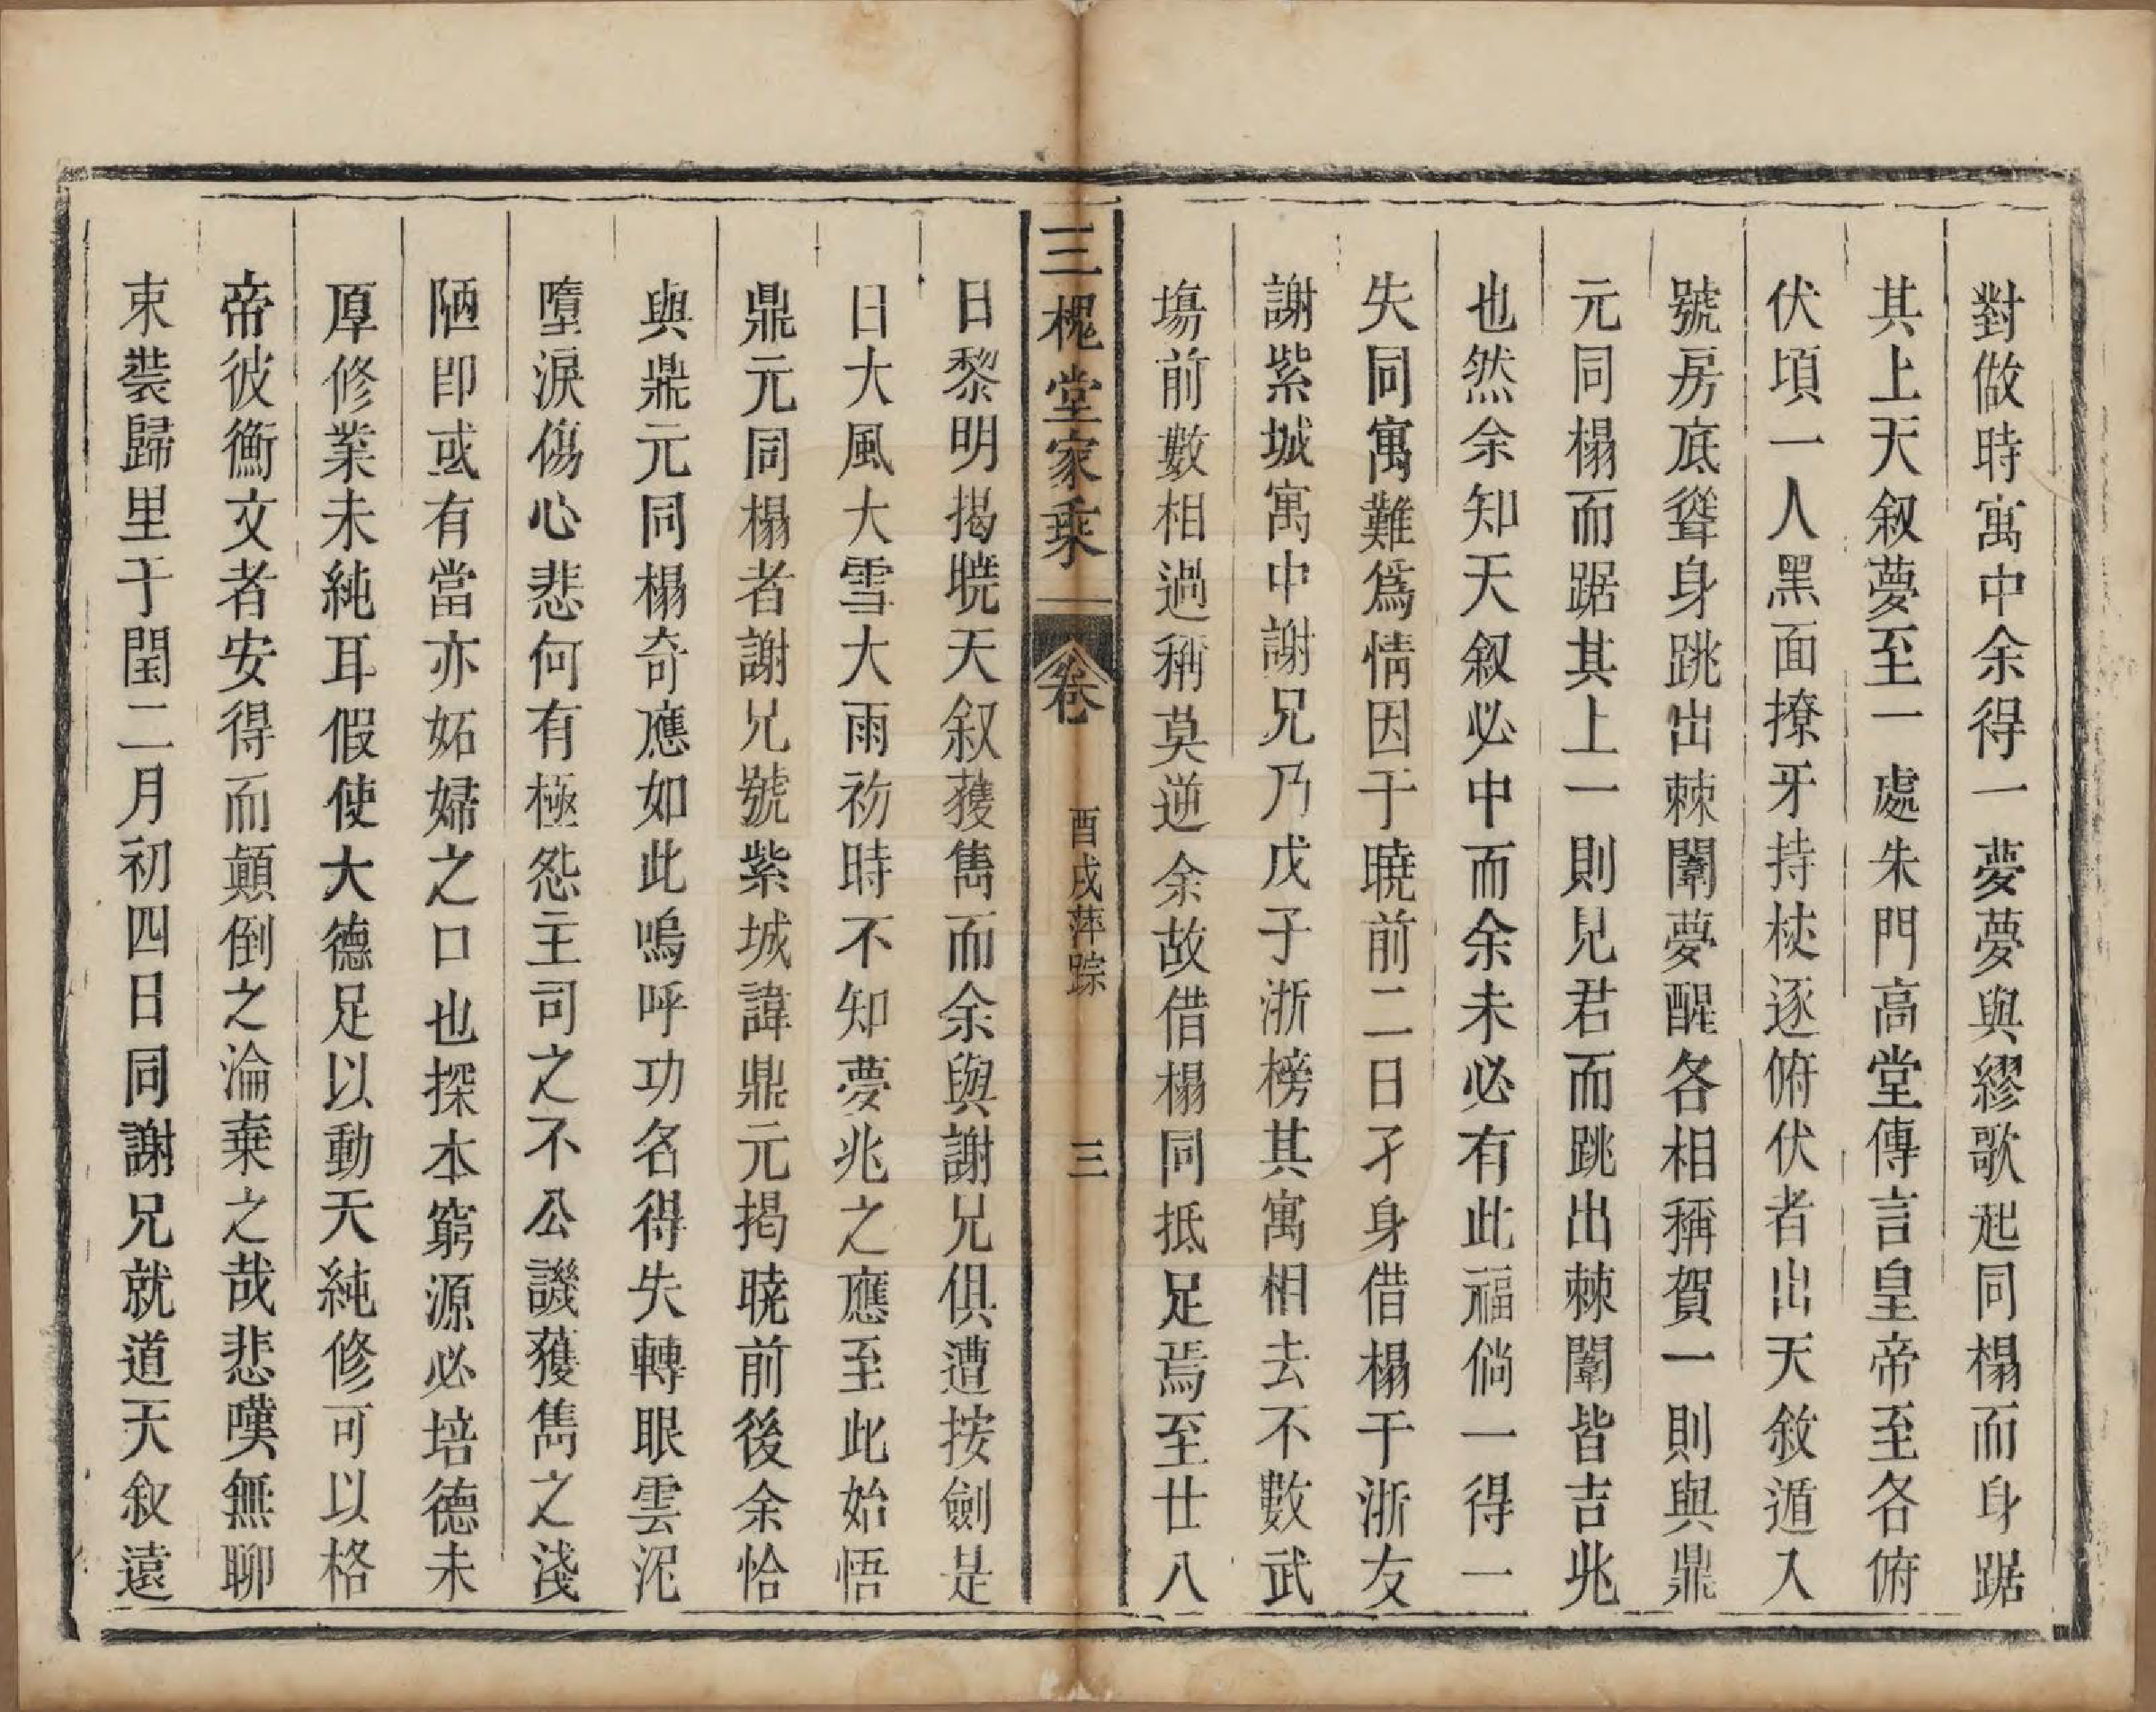 對做時寓中余得一夢夢與繆歌起同榻而身踞
其上天叙夢至一處朱門高堂傳言皇帝至各俯
伏頃一人黑面撩牙持杖逐俯伏者出天敘遁入
號房底聳身跳出棘闈夢醒各相稱賀一則與鼎
元同榻而踞其上一則見君而跳出棘闈皆吉兆
也然余知天叙必中而余未必有此福倘一得一
失同寓難為情因于曉前二日孑身借榻于浙友
謝紫城寓中謝兄乃戊子浙榜其寓相去不數武
場前數相過稱莫逆余故借榻同抵足焉至廿八
三槐堂家乘 卷 酉戌萍踪 三
日黎明揭曉天叙獲雋而余與謝兄俱遭按劍是
日大風大雪大雨初時不知夢兆之應至此始悟
鼎元同榻者謝兄號紫城諱鼎元揭曉前後余恰
與鼎元同榻奇應如此嗚呼功名得失轉眼雲泥
墮淚傷心悲何有極怨主司之不公譏獲雋之淺
陋即或有當亦妬婦之口也探本窮源必培德未
厚修業未純耳假使大德足以動天純修可以格
帝彼衡文者安得而顛倒之淪棄之哉悲嘆無聊
束裝歸里于閏二月初四日同謝兄就道天叙遠